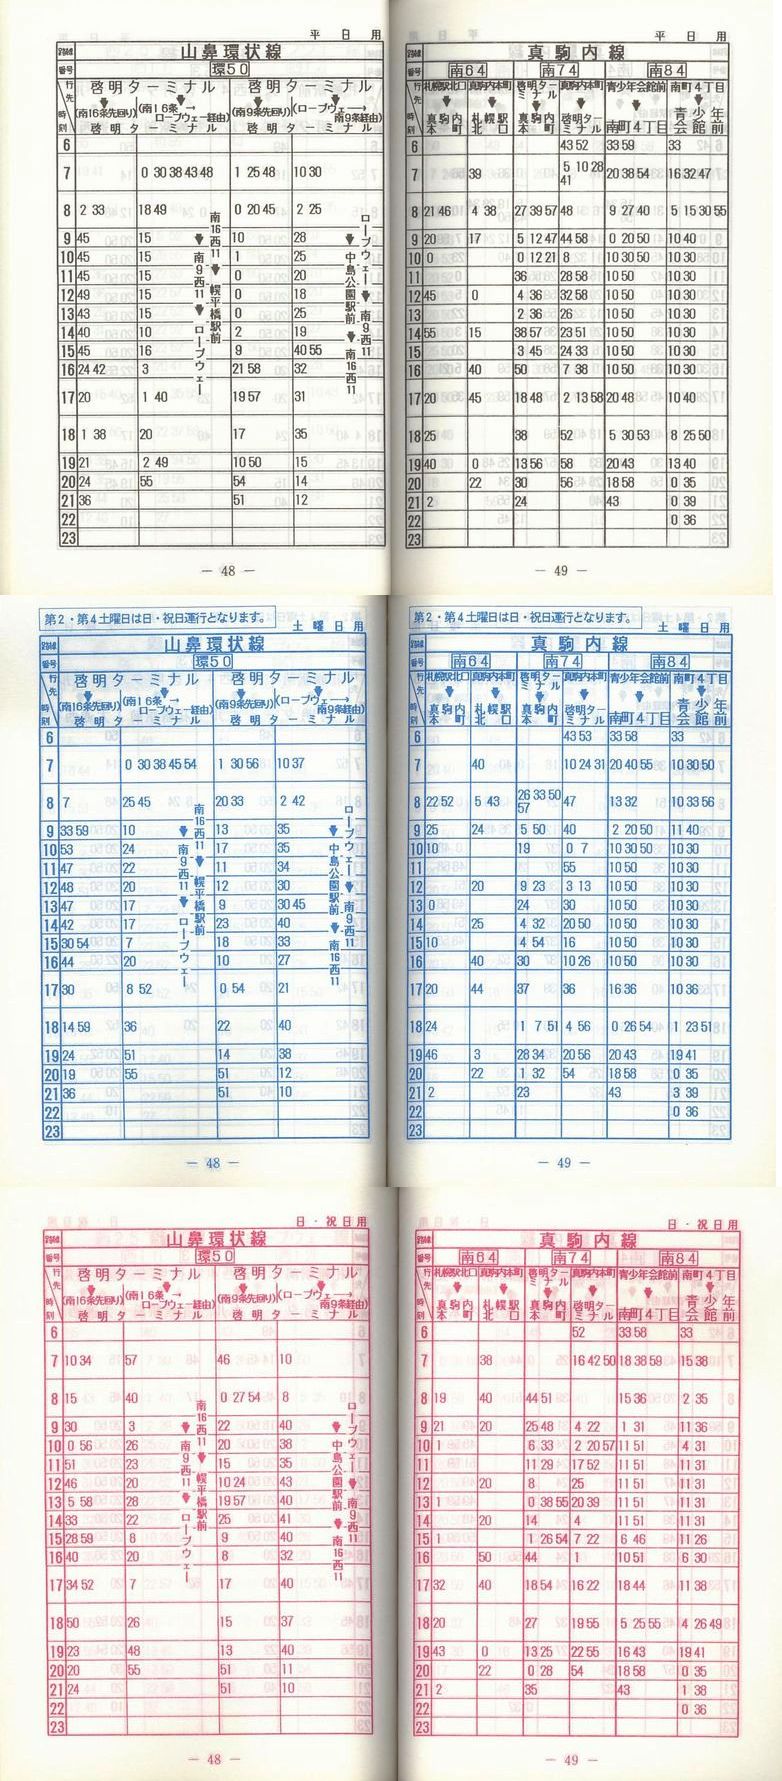 平日用
山鼻環状線
番号 環50
行先 啓明ターミナル 啓明ターミナル
(南16条先回り) (南16条→ロープウェー経由) (南9条先回り) (ロープウェー→南9条経由)
時刻 啓明ターミナル 啓明ターミナル
6
7 0 30 38 43 48 1 25 48 10 30
8 2 33 18 49 0 20 45 2 25
9 45 15 10 28
10 45 15 1 25
11 45 15 0 20
12 49 15 0 18
13 43 15 0 25
14 40 10 2 19
15 45 16 9 40 55
16 24 42 3 21 58 32
17 20 1 40 19 57 31
18 1 38 20 17 35
19 21 2 49 10 50 15
20 24 55 54 14
21 36 51 12
22
23
南16西11→幌平橋駅前
→南9西11→ロープウェー
ロープウェー→南9西11
→中島公園駅前→南16西11
— 48 —
平日用
真駒内線
番号 南64 南74 南84
行先 札幌駅北口 真駒内本町 啓明ターミナル 真駒内本町 青少年会館前 南町4丁目
時刻 真駒内本町 札幌駅北口 真駒内本町 啓明ターミナル 南町4丁目 青少年会館前
6 43 52 33 59 33
7 39 5 10 28 41 20 38 54 16 32 47
8 21 46 4 38 27 39 57 48 9 27 40 5 15 30 55
9 20 17 5 12 47 44 58 0 20 50 10 40
10 0 0 12 21 8 10 30 50 10 30
11 36 28 58 10 50 10 30
12 45 0 4 36 32 58 10 50 10 30
13 2 36 26 10 50 10 30
14 55 15 38 57 23 51 10 50 10 30
15 3 45 24 33 10 50 10 30
16 40 50 7 38 10 50 10 30
17 20 45 18 48 2 13 58 20 48 10 40
18 25 38 52 5 30 53 8 25 50
19 40 0 13 56 58 20 43 13 40
20 22 30 56 18 58 0 35
21 2 24 43 0 39
22 0 36
23
— 49 —
第2・第4土曜日は日・祝日運行となります。
土曜日用
山鼻環状線
番号 環50
行先 啓明ターミナル 啓明ターミナル
(南16条先回り) (南16条→ロープウェー経由) (南9条先回り) (ロープウェー→南9条経由)
時刻 啓明ターミナル 啓明ターミナル
6
7 0 30 38 45 54 1 30 56 10 37
8 7 25 45 20 33 2 42
9 33 59 10 13 35
10 53 24 17 35
11 47 22 11 34
12 48 20 12 30
13 47 17 9 30 45
14 42 17 23 40
15 30 54 7 18 33
16 44 20 10 27
17 30 8 52 0 54 21
18 14 59 36 22 40
19 24 51 14 38
20 19 55 51 12
21 36 51 10
22
23
南16西11→幌平橋駅前
→南9西11→ロープウェー
ロープウェー→南9西11
→中島公園駅前→南16西11
— 48 —
第2・第4土曜日は日・祝日運行となります。
土曜日用
真駒内線
番号 南64 南74 南84
行先 札幌駅北口 真駒内本町 啓明ターミナル 真駒内本町 青少年会館前 南町4丁目
時刻 真駒内本町 札幌駅北口 真駒内本町 啓明ターミナル 南町4丁目 青少年会館前
6 43 53 33 58 33
7 40 10 24 31 20 40 55 10 30 50
8 22 52 5 43 26 33 50 57 47 13 32 10 33 56
9 25 24 5 50 40 2 20 50 11 40
10 10 19 0 7 10 30 50 10 30
11 55 10 50 10 30
12 20 9 23 3 13 10 50 10 30
13 0 24 30 10 50 10 30
14 25 4 32 20 50 10 50 10 30
15 10 4 54 16 10 50 10 30
16 40 30 10 26 10 50 10 30
17 20 44 37 36 16 36 10 36
18 24 1 7 51 4 56 0 26 54 1 23 51
19 46 3 28 34 20 56 20 43 19 41
20 22 1 32 54 18 58 0 35
21 2 23 43 3 39
22 0 36
23
— 49 —
日・祝日用
山鼻環状線
番号 環50
行先 啓明ターミナル 啓明ターミナル
(南16条先回り) (南16条→ロープウェー経由) (南9条先回り) (ロープウェー→南9条経由)
時刻 啓明ターミナル 啓明ターミナル
6
7 10 34 57 46 10
8 15 40 0 27 54 8
9 30 3 22 40
10 0 56 26 20 38
11 51 23 15 35
12 46 20 10 24 43
13 5 58 28 19 57 40
14 33 22 25 41
15 28 59 8 9 40
16 40 20 8 32
17 34 52 7 17 40
18 50 26 15 37
19 23 48 13 40
20 20 55 51 11
21 24 51 10
22
23
南16西11→幌平橋駅前
→南9西11→ロープウェー
ロープウェー→南9西11
→中島公園駅前→南16西11
— 48 —
日・祝日用
真駒内線
番号 南64 南74 南84
行先 札幌駅北口 真駒内本町 啓明ターミナル 真駒内本町 青少年会館前 南町4丁目
時刻 真駒内本町 札幌駅北口 真駒内本町 啓明ターミナル 南町4丁目 青少年会館前
6 52 33 58 33
7 38 16 42 50 18 38 59 15 38
8 19 40 44 51 15 36 2 35
9 21 20 25 48 4 22 1 31 11 36
10 1 6 33 2 20 57 11 51 4 31
11 11 29 17 52 11 51 11 31
12 20 8 25 11 51 11 31
13 1 0 38 55 20 39 11 51 11 31
14 20 14 4 11 51 11 31
15 1 1 26 54 7 22 6 46 11 26
16 50 44 1 10 51 6 30
17 32 40 18 54 16 22 18 44 11 38
18 20 27 19 55 5 25 55 4 26 49
19 43 0 13 25 22 55 16 43 19 41
20 22 0 28 54 18 58 0 35
21 2 35 43 1 38
22 0 36
23
— 49 —